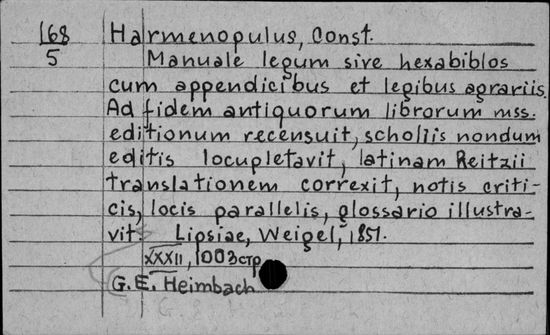 168
5
Harmenopulus, Const.
Manuale legum sire hexabiblos
cum appendicibus et legibus agrariis.
Ad fidem antiquorum librorum mss.
editionum recensuit, scholiis nondum
editis locupletavit, latinam Reitzii
translationem correxit, notis criti-
cis, locis parallelis, glossario illustra-
vit. Lipsiae, Weigel, 1851.
XXXII, 1003 стр.
G.E. Heimbach